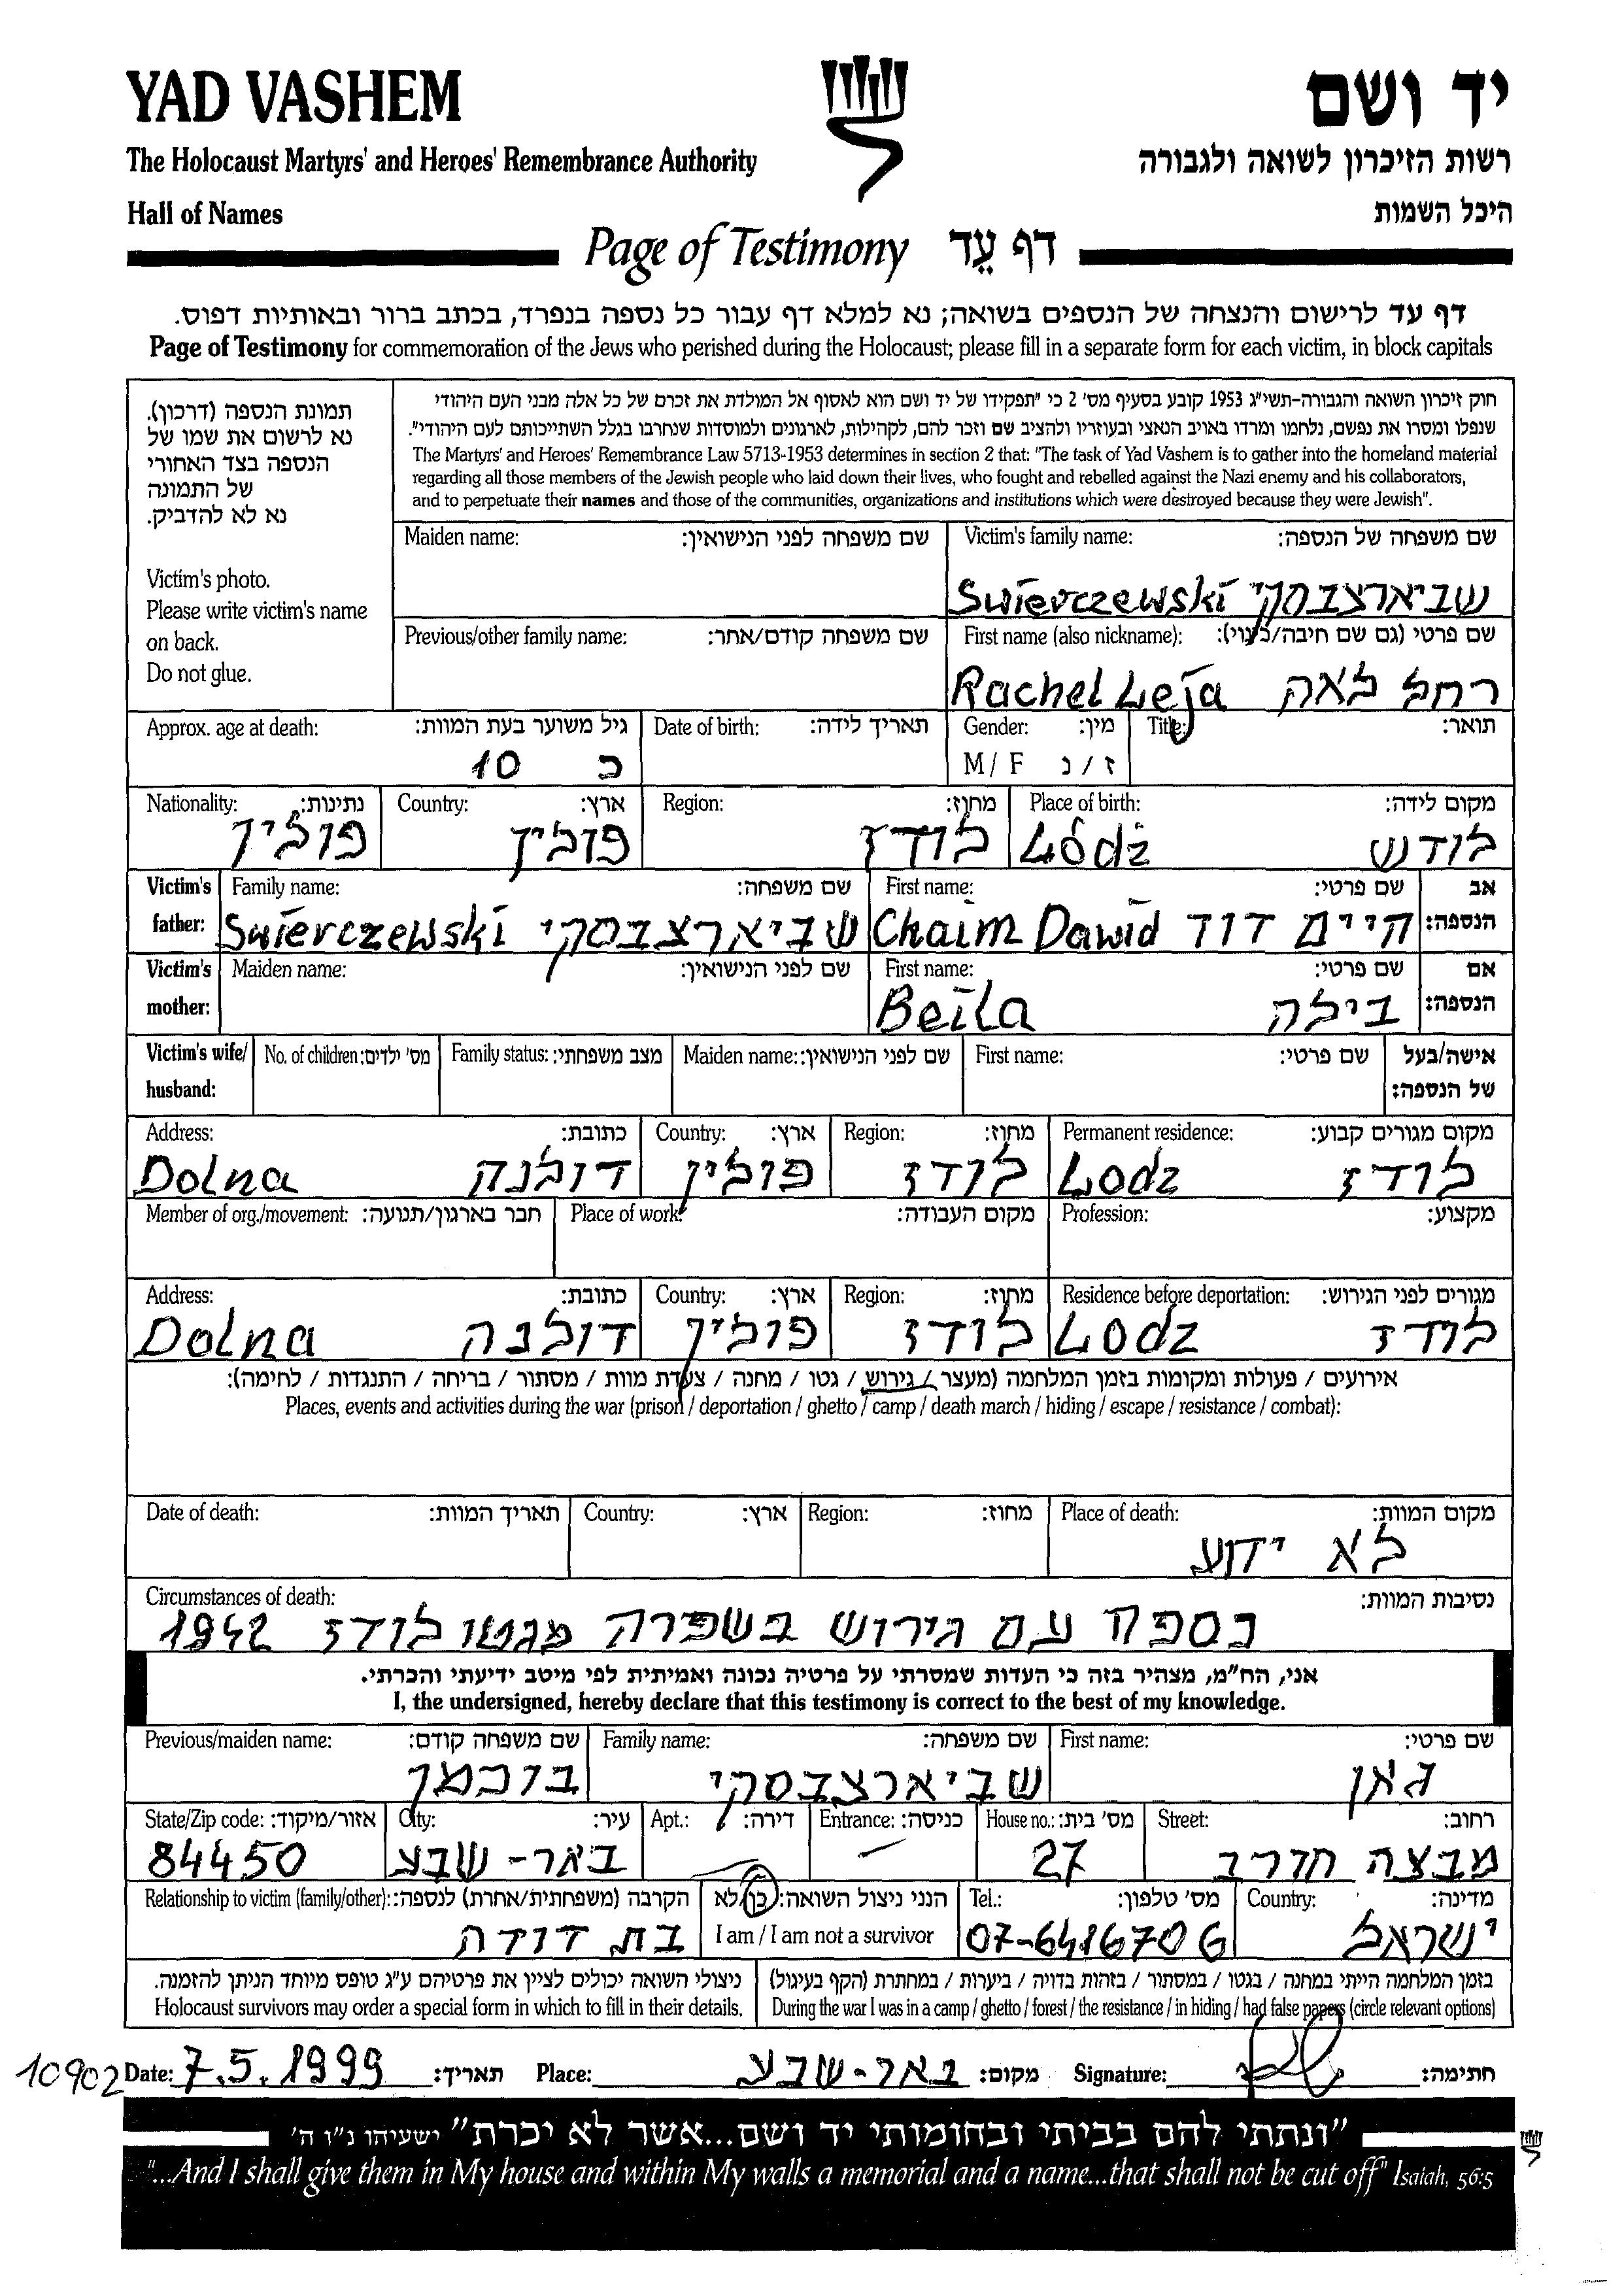 YAD VASHEM יד ושם
The Holocaust Martyrs' and Heroes' Remembrance Authority רשות הזיכרון לשואה ולגבורה
Hall of Names היכל השמות
Page of Testimony דף עֵד
דף עד לרישום והנצחה של הנספים בשואה; נא למלא דף עבור כל נספה בנפרד, בכתב ברור ובאותיות דפוס.
Page of Testimony for commemoration of the Jews who perished during the Holocaust; please fill in a separate form for each victim, in block capitals
תמונת הנספה (דרכון).
נא לרשום את שמו של
הנספה בצד האחורי
של התמונה
נא לא להדביק.
Victim's photo.
Please write victim's name
on back.
Do not glue.
חוק זיכרון השואה והגבורה-תשי"ג 1953 קובע בסעיף מס' 2 כי "תפקידו של יד ושם הוא לאסוף אל המולדת את זכרם של כל אלה מבני העם היהודי
שנפלו ומסרו את נפשם, נלחמו ומרדו באויב הנאצי ובעוזריו ולהציב שם וזכר להם, לקהילות, לארגונים ולמוסדות שנחרבו בגלל השתייכותם לעם היהודי".
The Martyrs' and Heroes' Remembrance Law 5713-1953 determines in section 2 that: "The task of Yad Vashem is to gather into the homeland material
regarding all those members of the Jewish people who laid down their lives, who fought and rebelled against the Nazi enemy and his collaborators,
and to perpetuate their names and those of the communities, organizations and institutions which were destroyed because they were Jewish".
Maiden name: שם משפחה לפני הנישואין: Victim's family name: שם משפחה של הנספה:
Swierczewski שביארצבסקי
Previous/other family name: שם משפחה קודם/אחר: First name (also nickname): שם פרטי (גם שם חיבה/כינוי):
Rachel Leja רחל לאה
Approx. age at death: גיל משוער בעת המוות: Date of birth: תאריך לידה: Gender: מין: Title: תואר:
10 כ M / F ז / נ
Nationality: נתינות: Country: ארץ: Region: מחוז: Place of birth: מקום לידה:
פולין פולין לודז Lódż לודש
Victim's father: Family name: שם משפחה: First name: שם פרטי: אב הנספה:
Swierczewski שביארצבסקי Chaim Dawid חיים דוד
Victim's mother: Maiden name: שם לפני הנישואין: First name: שם פרטי: אם הנספה:
Beila בילה
Victim's wife/ husband: No. of children: מס' ילדים: Family status: מצב משפחתי: Maiden name: שם לפני הנישואין: First name: שם פרטי: אישה/בעל של הנספה:
Address: כתובת: Country: ארץ: Region: מחוז: Permanent residence: מקום מגורים קבוע:
Dolna דולנה פולין לודז Lodz לודז
Member of org./movement: חבר בארגון/תנועה: Place of work: מקום העבודה: Profession: מקצוע:
Address: כתובת: Country: ארץ: Region: מחוז: Residence before deportation: מגורים לפני הגירוש:
Dolna דולנה פולין לודז Lodz לודז
אירועים / פעולות ומקומות בזמן המלחמה (מעצר / גירוש / גטו / מחנה / צעדת מוות / מסתור / בריחה / התנגדות / לחימה):
Places, events and activities during the war (prison / deportation / ghetto / camp / death march / hiding / escape / resistance / combat):
Date of death: תאריך המוות: Country: ארץ: Region: מחוז: Place of death: מקום המוות:
לא ידוע
Circumstances of death: נסיבות המוות:
נספח עם גירוש בשפרה מגטו לודז 1942
אני, הח"מ, מצהיר בזה כי העדות שמסרתי על פרטיה נכונה ואמיתית לפי מיטב ידיעתי והכרתי.
I, the undersigned, hereby declare that this testimony is correct to the best of my knowledge.
Previous/maiden name: שם משפחה קודם: Family name: שם משפחה: First name: שם פרטי:
בוכמן שביארצבסקי גאן
State/Zip code: אזור/מיקוד: City: עיר: Apt.: דירה: Entrance: כניסה: House no.: מס' בית: Street: רחוב:
84450 באר-שבע 27 מבצה חדרב
Relationship to victim (family/other): הקרבה (משפחתית/אחרת) לנספה: הנני ניצול השואה: כן/לא Tel.: מס' טלפון: Country: מדינה:
בת דודה I am / I am not a survivor 07-6416706 ישראל
ניצולי השואה יכולים לציין את פרטיהם ע"ג טופס מיוחד הניתן להזמנה. בזמן המלחמה הייתי במחנה / בגטו / במסתור / בזהות בדויה / ביערות / במחתרת (הקף בעיגול)
Holocaust survivors may order a special form in which to fill in their details. During the war I was in a camp / ghetto / forest / the resistance / in hiding / had false papers (circle relevant options)
10902 Date: 7.5.1999 תאריך: Place: באר-שבע מקום: Signature: חתימה:
"ונתתי להם בביתי ובחומותי יד ושם...אשר לא יכרת" ישעיהו נ"ו ה'
"...And I shall give them in My house and within My walls a memorial and a name...that shall not be cut off" Isaiah, 56:5